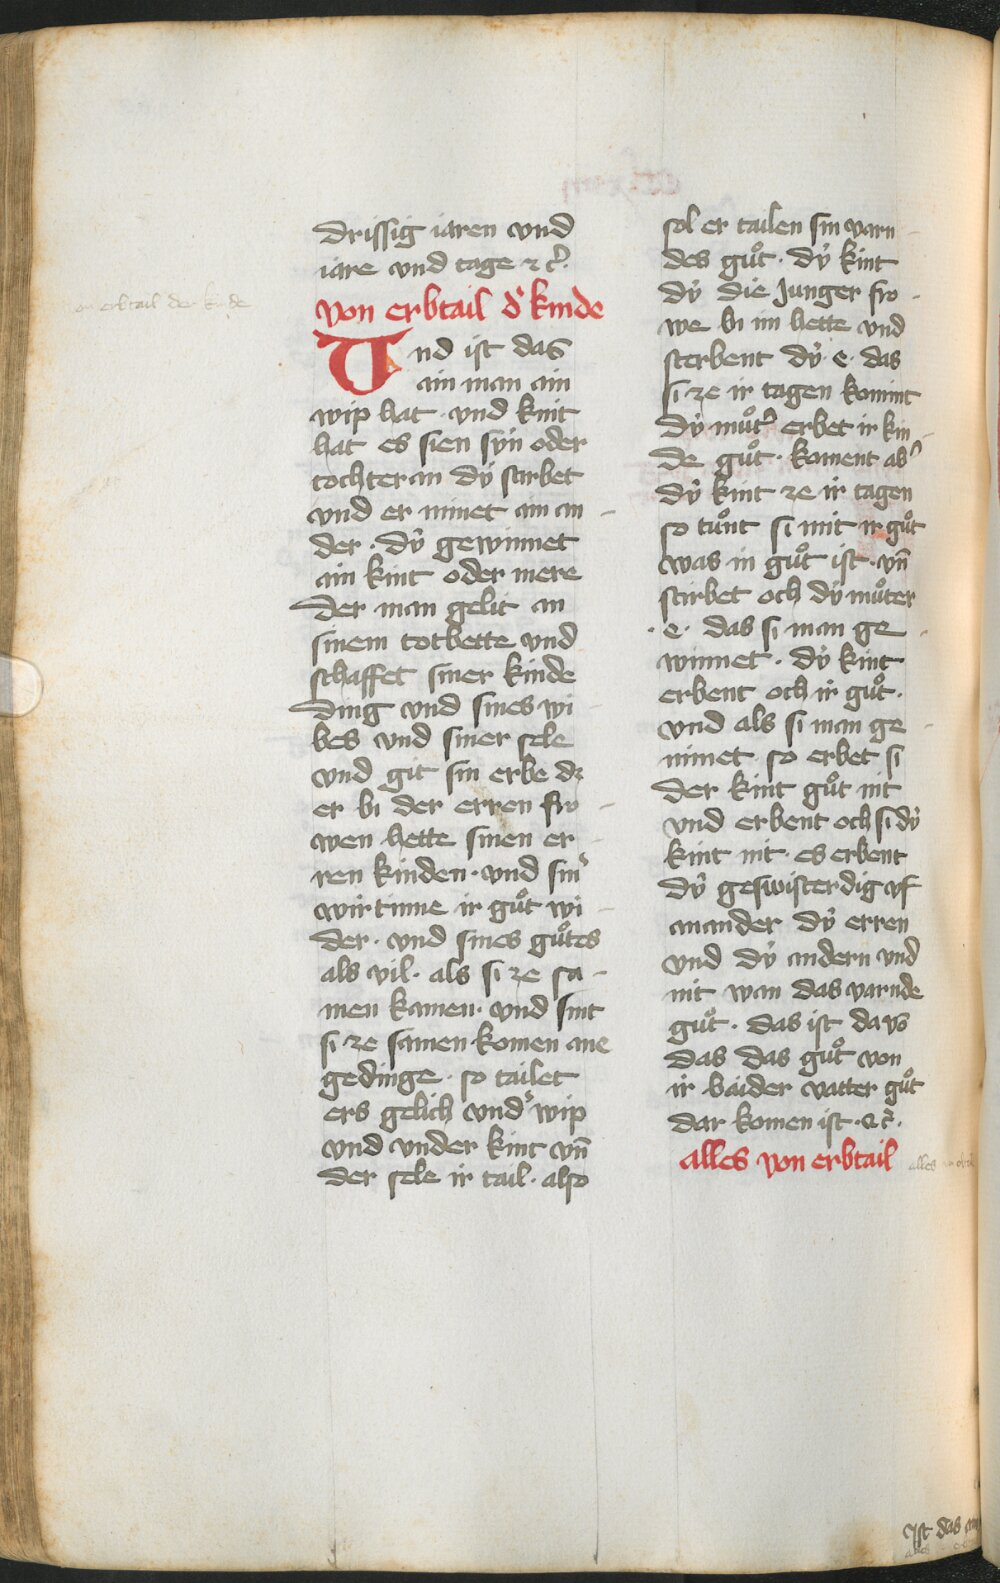 drissig iaren vnd
iare vnd tage ⁊ cꝰ.
von erbtail dˀ kinde
Vnd ist das
ain man ain
wip hat · vnd kint
hat es sien syn oder
tochter an dy stirbet
vnd er nimet ain an
der · dÿ gewinnet
ain kint oder mere
der man gelit an
sinem totbette vnd
schaffet siner kinde
ding vnd sines wi
bes vnd siner sele
vnd git sin erbe dz
er bi der erren fro
wen hette sinen er
ren kinden · vnd sinˀ
wirtinne ir guͦt wi
der · vnd sines guͦtes
als vil · als si ze sa
men kamen · vnd sint
si ze samen komen ane
gedinge · so tailet
ers gelich vndˀ wip
vnd vnder kint vn̄
der sele ir tail · also
sol er tailen sin varn
des guͦt · dÿ kint
dÿ die Junger fro
we bi im hette vnd
sterbent dÿ · e · das
si ze ir tagen komint
dÿ muͦtˀ erbet ir kin
de guͦt · koment abˀ
dÿ kint ze ir tagen
so tuͦnt si mit ir guͦt
was in guͦt ist · vn̄
stirbet och dÿ muͦter
· e · das si man ge
winnet · dÿ kint
erbent och ir guͦt ·
vnd als si man ge
nimet so erbet si
der kint guͦt nit
vnd erbent och si dÿ
kint nit · es erbent
dÿ geswisterdig vf
ainander dÿ erren
vnd dÿ andern vnd
nit wan das varnde
guͦt · das ist da vō
das das guͦt von
ir baider vatter guͦt
dar komen ist · ⁊ c̄ ·
alles von erbtail
on erbtail der kinde
alles
Ist das